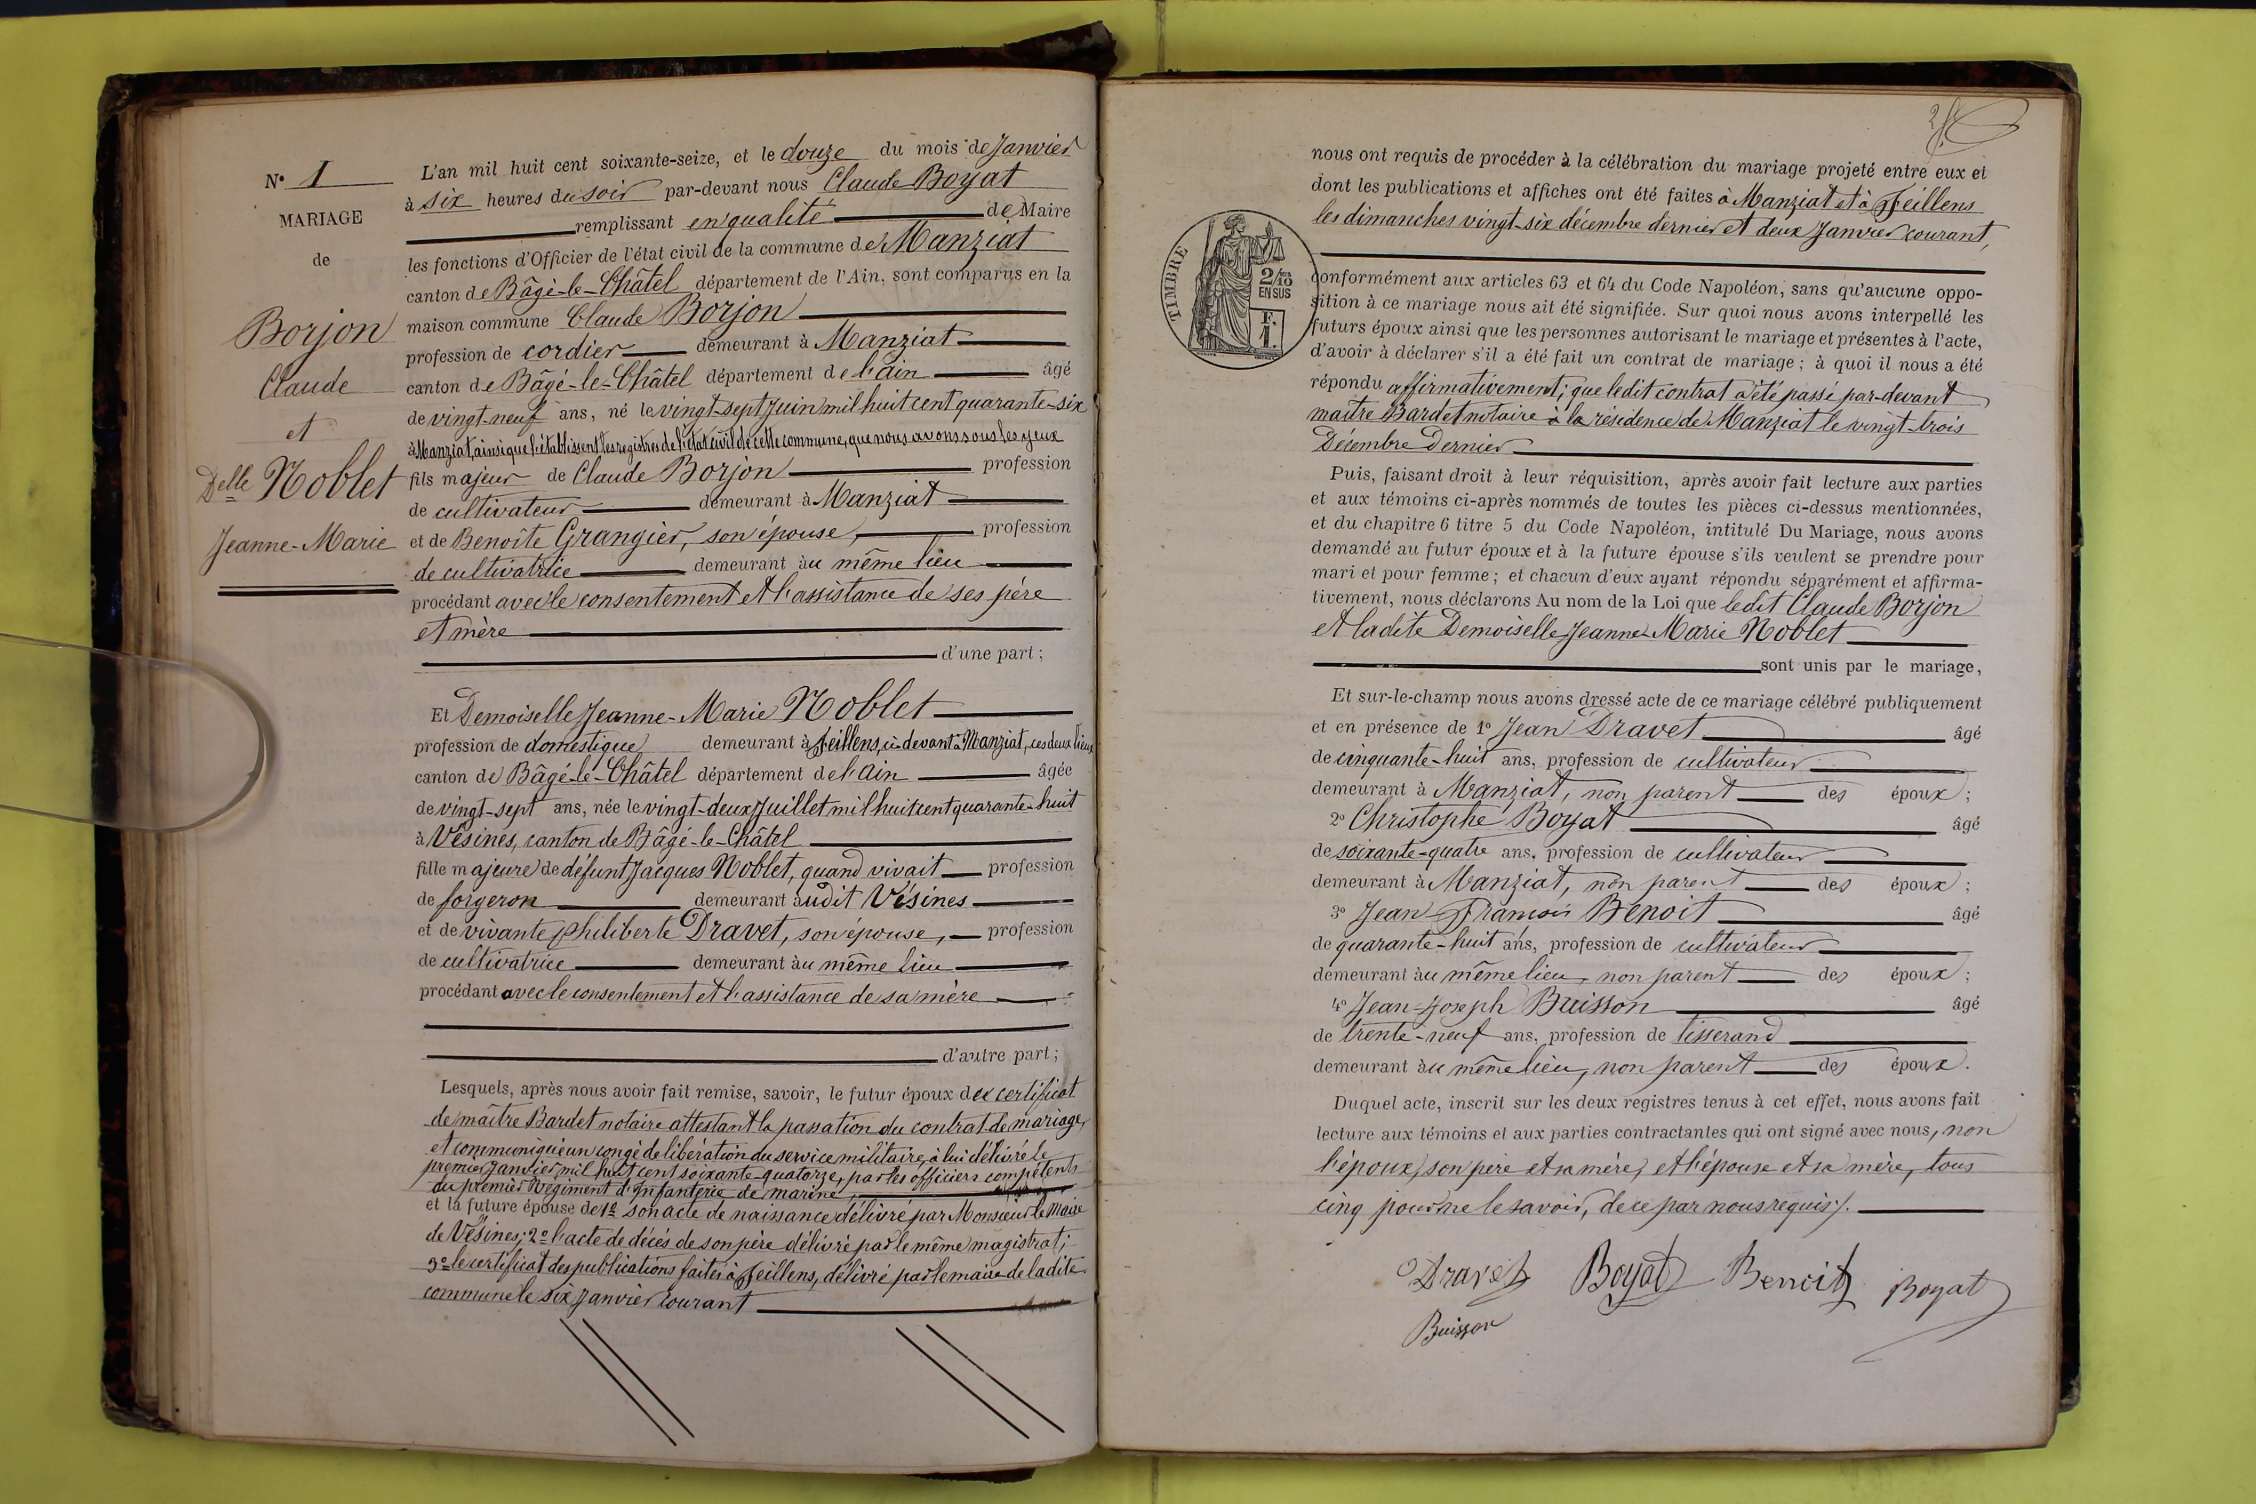 N° 1
MARIAGE
de
Borjon
Claude
et
Delle Noblet
Jeanne-Marie
L'an mil huit cent soixante-seize, et le douze du mois de Janvier
à six heures du soir par-devant nous Claude Boyat
remplissant en qualité de Maire
les fonctions d'Officier de l'état civil de la commune de Manziat
canton de Bâgé-le-Châtel département de l'Ain, sont comparus en la
maison commune Claude Borjon
profession de cordier demeurant à Manziat
canton de Bâgé-le-Châtel département de l'ain âgé
de vingt-neuf ans, né le vingt-sept Juin mil huit cent quarante-six
à Manziat, ainsi que l'établissent les registres de l'état civil de cette commune, que nous avons sous les yeux
fils majeur de Claude Borjon profession
de cultivateur demeurant à Manziat
et de Benoîte Grangier, son épouse, profession
de cultivatrice demeurant au même lieu
procédant avec le consentement et l'assistance de ses père
et mère
d'une part;
Et Demoiselle Jeanne-Marie Noblet
profession de domestique demeurant à Feillens, ci-devant à Manziat, ces deux lieux
canton de Bâgé-le-Châtel département de l'ain âgée
de vingt-sept ans, née le vingt-deux Juillet mil huit cent quarante-huit
à Vésines, canton de Bâgé-le-Châtel
fille majeure de défunt Jacques Noblet, quand vivait profession
de forgeron demeurant audit Vésines
et de vivante Philiberte Dravet, son épouse, profession
de cultivatrice demeurant au même lieu
procédant avec le consentement et l'assistance de sa mère
d'autre part;
Lesquels, après nous avoir fait remise, savoir, le futur époux du certificat
de maître Bardet notaire attestant la passation du contrat de mariage,
et communiqué un congé de libération du service militaire, à lui délivré le
premier Janvier mil huit cent soixante-quatorze, par les officiers compétents
du premier Régiment d'Infanterie de marine,
et la future épouse de 1° son acte de naissance délivré par Monsieur le Maire
de Vésines; 2° l'acte de décès de son père délivré par le même magistrat;
3° le certificat des publications faites à Feillens, délivré par le maire de ladite
commune le six Janvier courant
nous ont requis de procéder à la célébration du mariage projeté entre eux et
dont les publications et affiches ont été faites à Manziat et à Feillens
les dimanches vingt-six décembre dernier et deux Janvier courant,
TIMBRE
2/10
EN SUS
F.
1.
conformément aux articles 63 et 64 du Code Napoléon, sans qu'aucune oppo-
sition à ce mariage nous ait été signifiée. Sur quoi nous avons interpellé les
futurs époux ainsi que les personnes autorisant le mariage et présentes à l'acte,
d'avoir à déclarer s'il a été fait un contrat de mariage; à quoi il nous a été
répondu affirmativement; que ledit contrat a été passé par-devant
maître Bardet notaire à la résidence de Manziat le vingt-trois
Décembre dernier
Puis, faisant droit à leur réquisition, après avoir fait lecture aux parties
et aux témoins ci-après nommés de toutes les pièces ci-dessus mentionnées,
et du chapitre 6 titre 5 du Code Napoléon, intitulé Du Mariage, nous avons
demandé au futur époux et à la future épouse s'ils veulent se prendre pour
mari et pour femme; et chacun d'eux ayant répondu séparément et affirma-
tivement, nous déclarons Au nom de la Loi que ledit Claude Borjon
et ladite Demoiselle Jeanne-Marie Noblet
sont unis par le mariage,
Et sur-le-champ nous avons dressé acte de ce mariage célébré publiquement
et en présence de 1° Jean Dravet âgé
de cinquante-huit ans, profession de cultivateur
demeurant à Manziat, non parent des époux;
2° Christophe Boyat âgé
de soixante-quatre ans, profession de cultivateur
demeurant à Manziat, non parent des époux;
3° Jean-François Benoit âgé
de quarante-huit ans, profession de cultivateur
demeurant au même lieu, non parent des époux;
4° Jean-Joseph Buisson âgé
de trente-neuf ans, profession de tisserand
demeurant au même lieu, non parent des époux.
Duquel acte, inscrit sur les deux registres tenus à cet effet, nous avons fait
lecture aux témoins et aux parties contractantes qui ont signé avec nous, non
l'époux, son père et sa mère, et l'épouse et sa mère, tous
cinq pour ne le savoir, de ce par nous requis./.
Dravet Boyat Benoit Boyat
Buisson